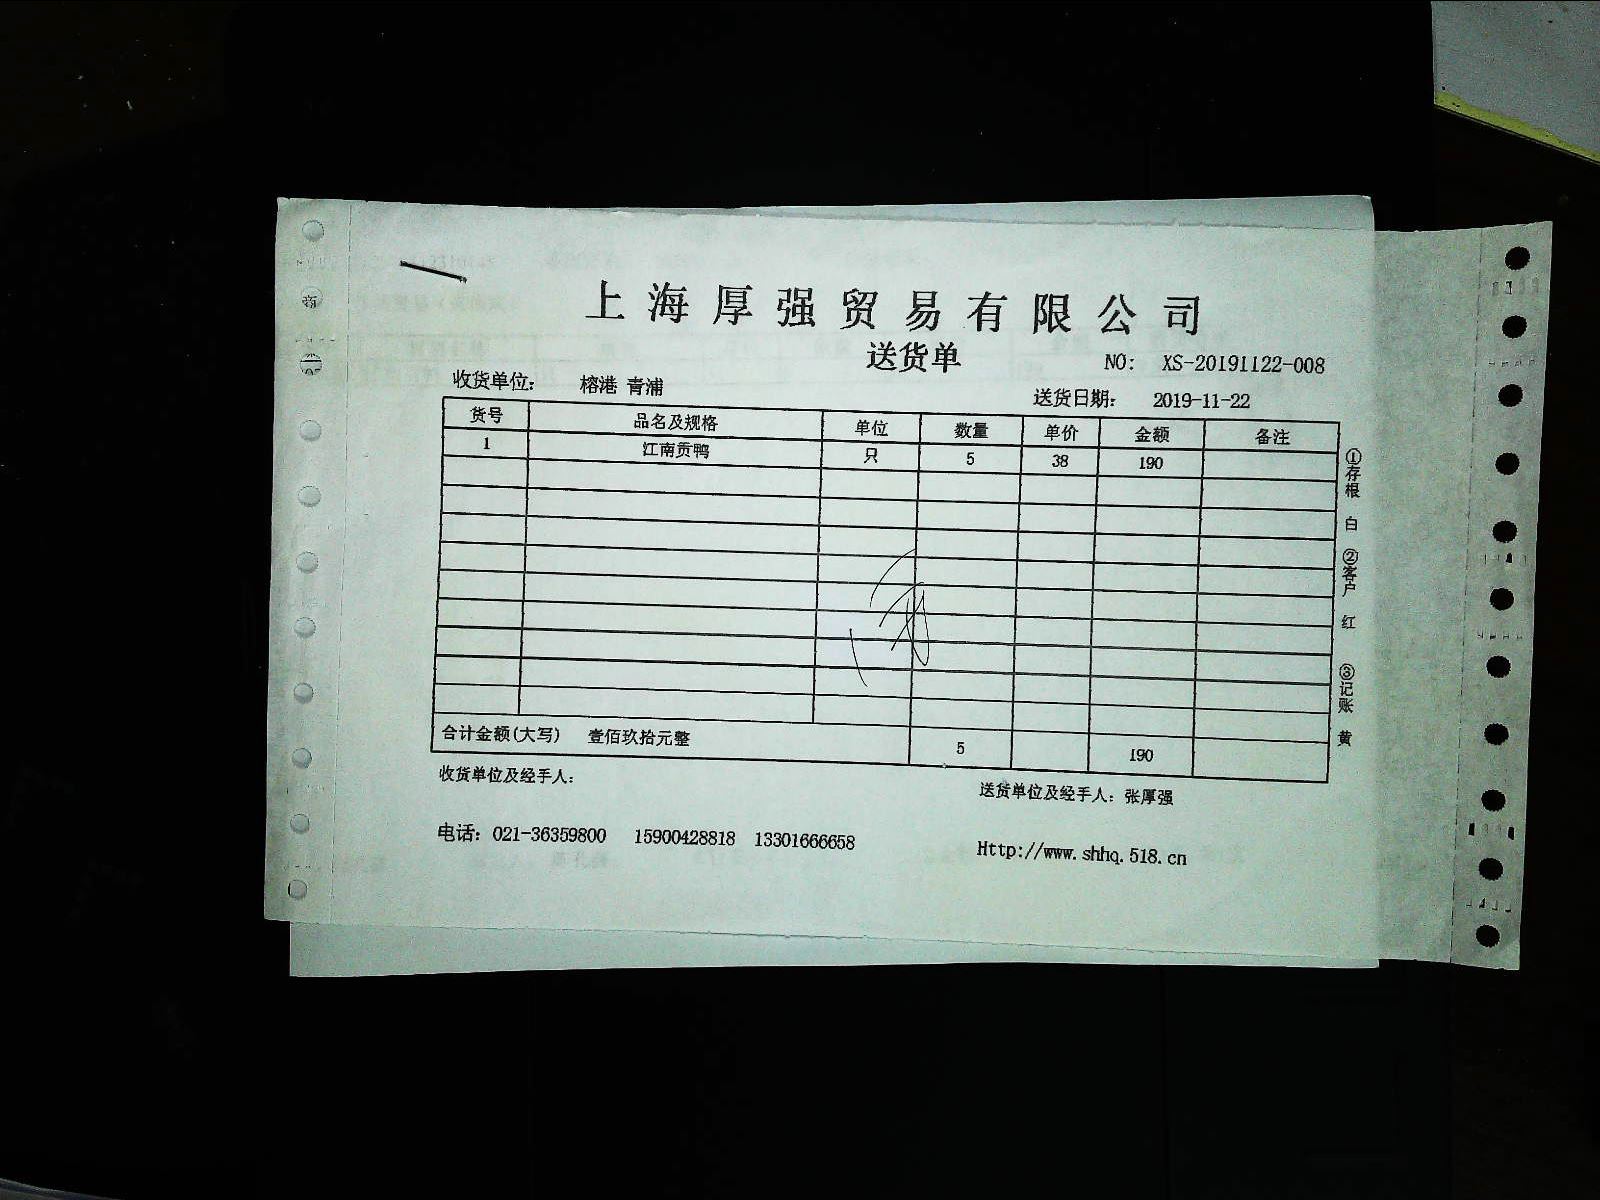 上海厚强贸易有限公司
送货单
NO: XS-20191122-008
收货单位: 榕港 青浦
送货日期: 2019-11-22
货号 品名及规格 单位 数量 单价 金额 备注
1 江南贡鸭 只 5 38 190
合计金额(大写) 壹佰玖拾元整 5 190
①存根 白 ②客户 红 ③记账 黄
收货单位及经手人:
送货单位及经手人: 张厚强
电话: 021-36359800 15900428818 13301666658
Http://www.shhq.518.cn